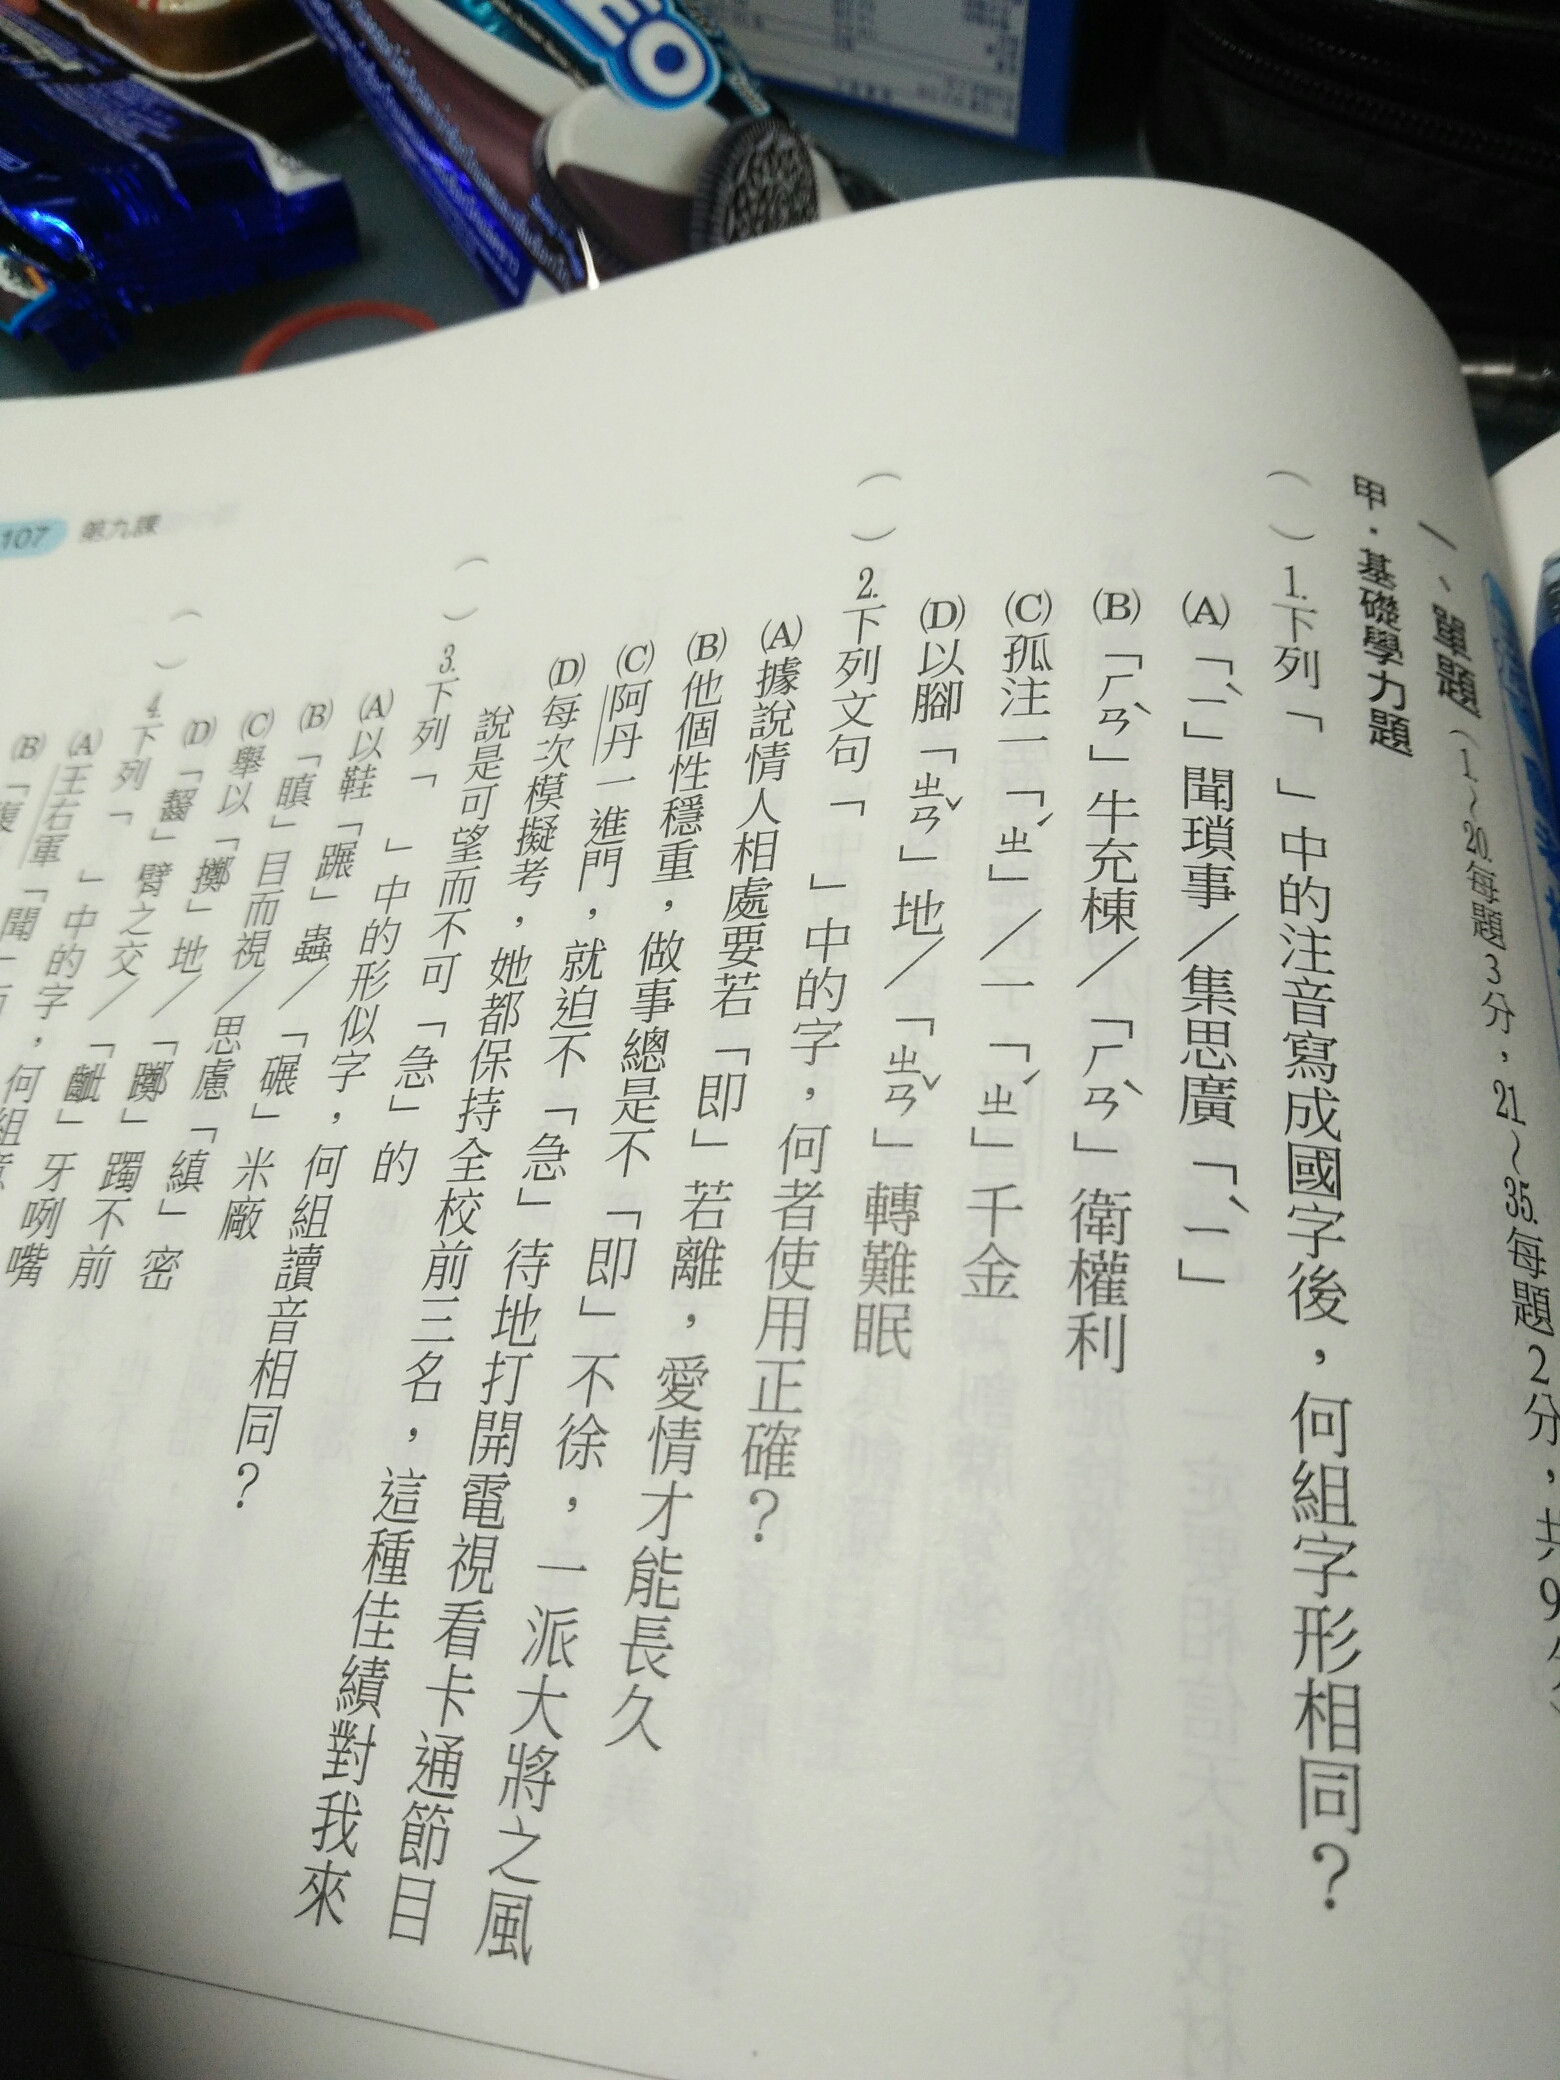 一、單題（1.～20.每題3分，21.～35.每題2分，共9
甲．基礎學力題
（　）1.下列「　」中的注音寫成國字後，何組字形相同？
(A)「ㄧˋ」聞瑣事／集思廣「ㄧˋ」
(B)「ㄏㄢˋ」牛充棟／「ㄏㄢˋ」衛權利
(C)孤注一「ㄓˊ」／一「ㄓˊ」千金
(D)以腳「ㄓㄢˇ」地／「ㄓㄢˇ」轉難眠
（　）2.下列文句「　」中的字，何者使用正確？
(A)據說情人相處要若「即」若離，愛情才能長久
(B)他個性穩重，做事總是不「即」不徐，一派大將之風
(C)阿丹一進門，就迫不「急」待地打開電視看卡通節目
(D)每次模擬考，她都保持全校前三名，這種佳績對我來
說是可望而不可「急」的
（　）3.下列「　」中的形似字，何組讀音相同？
(A)以鞋「蹍」蟲／「碾」米廠
(B)「瞋」目而視／思慮「縝」密
(C)舉以「擲」地／「躑」躅不前
(D)「齧」臂之交／「齜」牙咧嘴
（　）4.下列「　」中的字，何組
(A)王右軍「聞
(B)「
107 第九課
EO